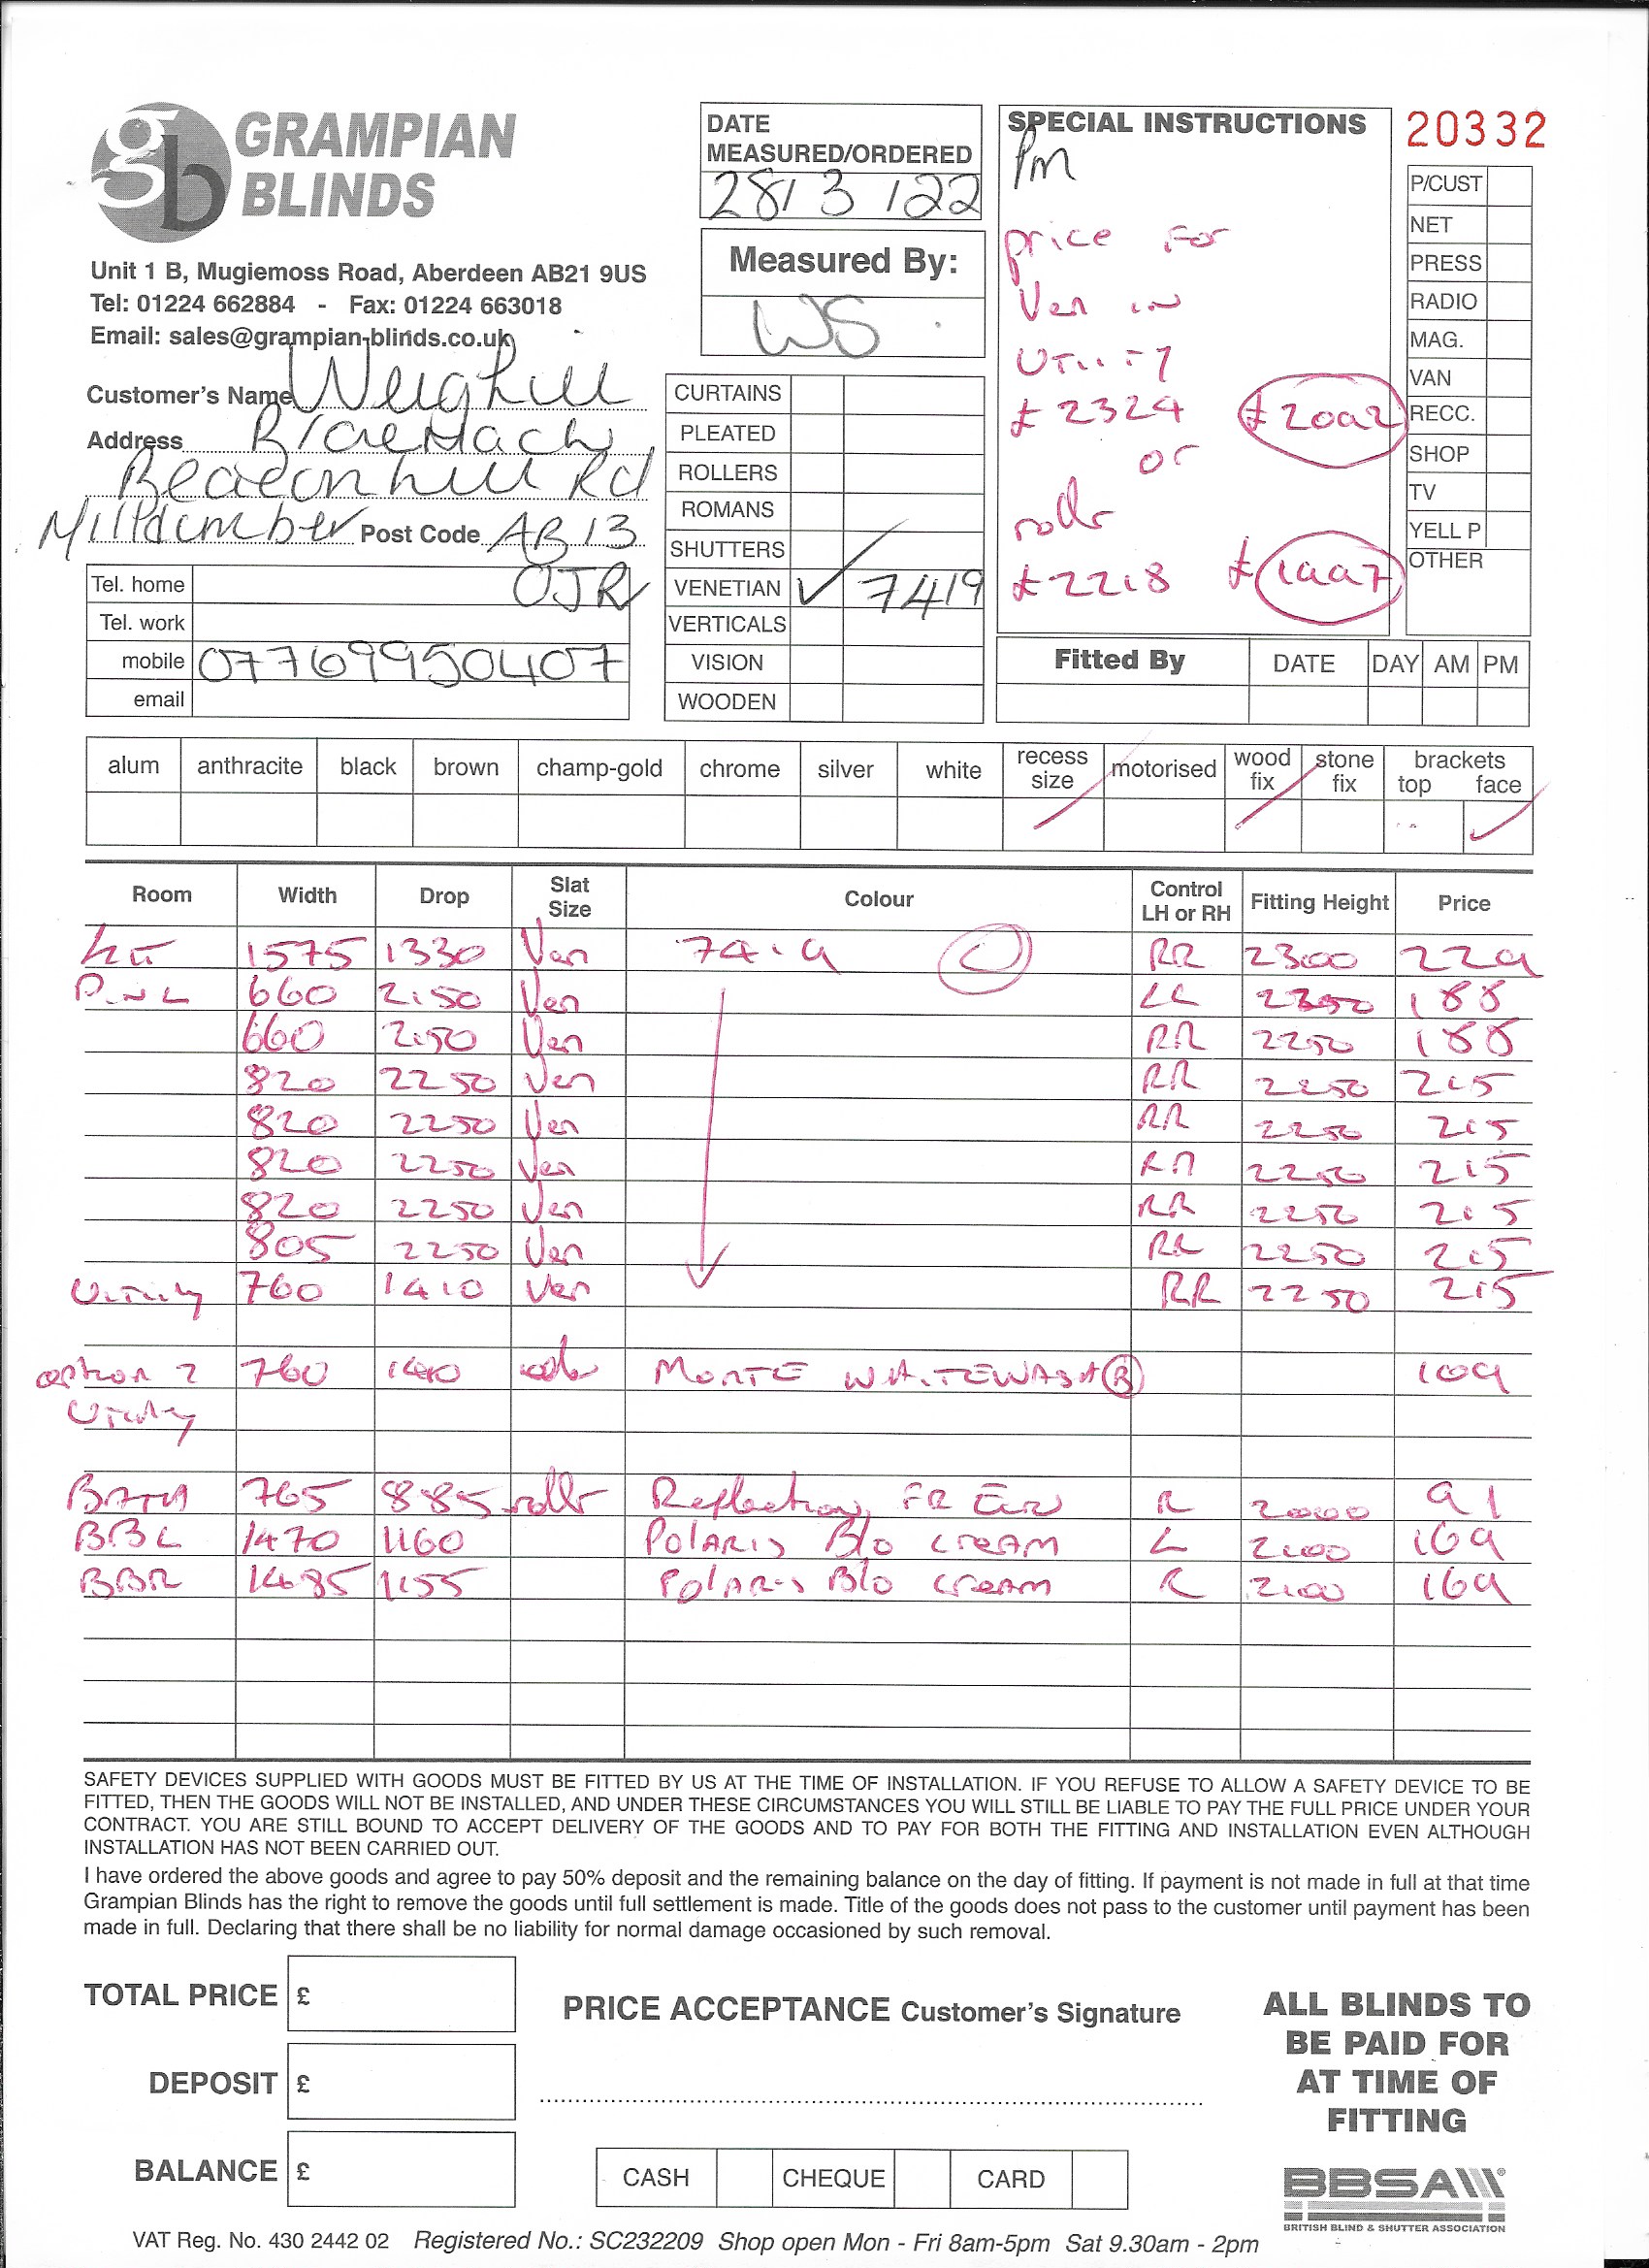 gb GRAMPIAN BLINDS
Unit 1 B, Mugiemoss Road, Aberdeen AB21 9US
Tel: 01224 662884 - Fax: 01224 663018
Email: sales@grampian-blinds.co.uk
Customer's Name Weighill
Address Braeriach
Beaconhill Rd
Milltimber Post Code AB13
0JR
Tel. home
Tel. work
mobile 07769950407
email
DATE
MEASURED/ORDERED
28/3/22
Measured By:
WS
CURTAINS
PLEATED
ROLLERS
ROMANS
SHUTTERS
VENETIAN ✓ 7419
VERTICALS
VISION
WOODEN
SPECIAL INSTRUCTIONS
Pm
price for
Ven in
Utility
£2324 £2092
or
rollr
£2218 £1997
20332
P/CUST
NET
PRESS
RADIO
MAG.
VAN
RECC.
SHOP
TV
YELL P
OTHER
Fitted By DATE DAY AM PM
alum anthracite black brown champ-gold chrome silver white recess size motorised wood fix stone fix brackets top face
Room Width Drop Slat Size Colour Control LH or RH Fitting Height Price
KIT 1575 1330 Ven 74.9 C RR 2300 229
660 2150 Ven LL 188
660 2150 Ven RR 2250 188
820 2250 Ven RR 2250 215
820 2250 Ven RR 2250 215
820 2250 Ven RR 2250 215
820 2250 Ven RR 2250 215
805 2250 Ven 2250 215
Utility 760 1410 Ven RR 2250 215
option 2 760 1410 MONTE WHITEWASH B 109
Utility
BATH 765 885 rollr Reflections FR R 2000 91
BBL 1470 1160 POLARIS B/o CREAM L 2100 169
BBR 1485 1155 POLARIS B/o CREAM R 2100 169
SAFETY DEVICES SUPPLIED WITH GOODS MUST BE FITTED BY US AT THE TIME OF INSTALLATION. IF YOU REFUSE TO ALLOW A SAFETY DEVICE TO BE
FITTED, THEN THE GOODS WILL NOT BE INSTALLED, AND UNDER THESE CIRCUMSTANCES YOU WILL STILL BE LIABLE TO PAY THE FULL PRICE UNDER YOUR
CONTRACT. YOU ARE STILL BOUND TO ACCEPT DELIVERY OF THE GOODS AND TO PAY FOR BOTH THE FITTING AND INSTALLATION EVEN ALTHOUGH
INSTALLATION HAS NOT BEEN CARRIED OUT.
I have ordered the above goods and agree to pay 50% deposit and the remaining balance on the day of fitting. If payment is not made in full at that time
Grampian Blinds has the right to remove the goods until full settlement is made. Title of the goods does not pass to the customer until payment has been
made in full. Declaring that there shall be no liability for normal damage occasioned by such removal.
TOTAL PRICE £
DEPOSIT £
BALANCE £
PRICE ACCEPTANCE Customer's Signature
CASH CHEQUE CARD
ALL BLINDS TO
BE PAID FOR
AT TIME OF
FITTING
BBSA
BRITISH BLIND & SHUTTER ASSOCIATION
VAT Reg. No. 430 2442 02 Registered No.: SC232209 Shop open Mon - Fri 8am-5pm Sat 9.30am - 2pm